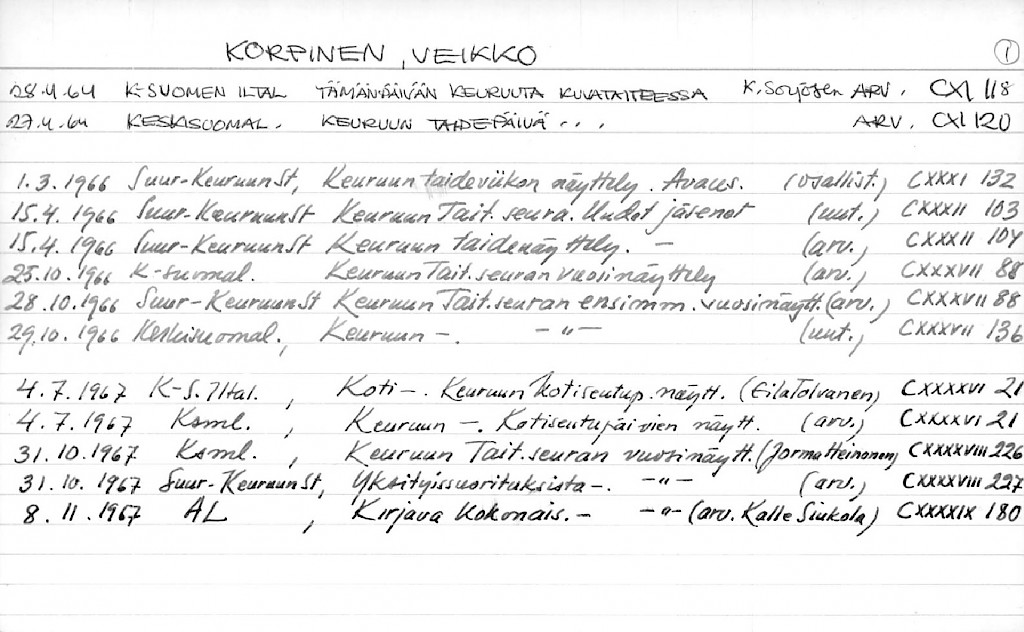 KORPINEN, VEIKKO 1
28.4.64 K-SUOMEN ILTAL TÄMÄNPÄIVÄN KEURUUTA KUVATAITEESSA K. Sorjosen ARV. CXI 118
27.4.64 KESKISUOMAL. KEURUUN TAIDEPÄIVÄ... ARV. CXI 120
1.3.1966 Suur-KeuruunSt, Keuruun taideviikon näyttely. Avaus. (osallist.) CXXXI 132
15.4.1966 Suur-KeuruunSt Keuruun Tait. seura. Uudet jäsenet (uut.) CXXXII 103
15.4.1966 Suur-KeuruunSt Keuruun taidenäyttely. - (arv.) CXXXII 104
25.10.1966 K-suomal. Keuruun Tait. seuran vuosinäyttely (arv.) CXXXVII 88
28.10.1966 Suur-KeuruunSt Keuruun Tait. seuran ensimm. vuosinäytt. (arv.) CXXXVII 88
29.10.1966 Keskisuomal., Keuruun -. -"- (uut.) CXXXVII 136
4.7.1967 K-S. Iltal., Koti-. Keuruun kotiseutup. näytt. (Eila Tolvanen) CXXXXVI 21
4.7.1967 Ksml., Keuruun -. Kotiseutupäivien näytt. (arv.) CXXXXVI 21
31.10.1967 Ksml., Keuruun Tait. seuran vuosinäytt. (Jorma Heinonen) CXXXXVIII 226
31.10.1967 Suur-KeuruunSt, Yksityissuorituksista -. -"- (arv.) CXXXXVIII 227
8.11.1967 AL, Kirjava kokonais. - -"- (arv. Kalle Siukola) CXXXXIX 180